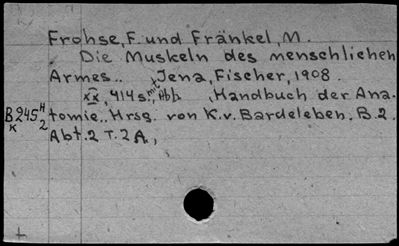 Frohse, F. und Fränkel, M.
Die Muskeln des menschlichen
Armes.. Jena, Fischer, 1908.
XX, 414 s. mit Abb. , Handbuch der Ana-
B 245 H tomie.. Hrsg. von K. v. Bardeleben, B.2.
K 2
Abt.2 T.2 A,